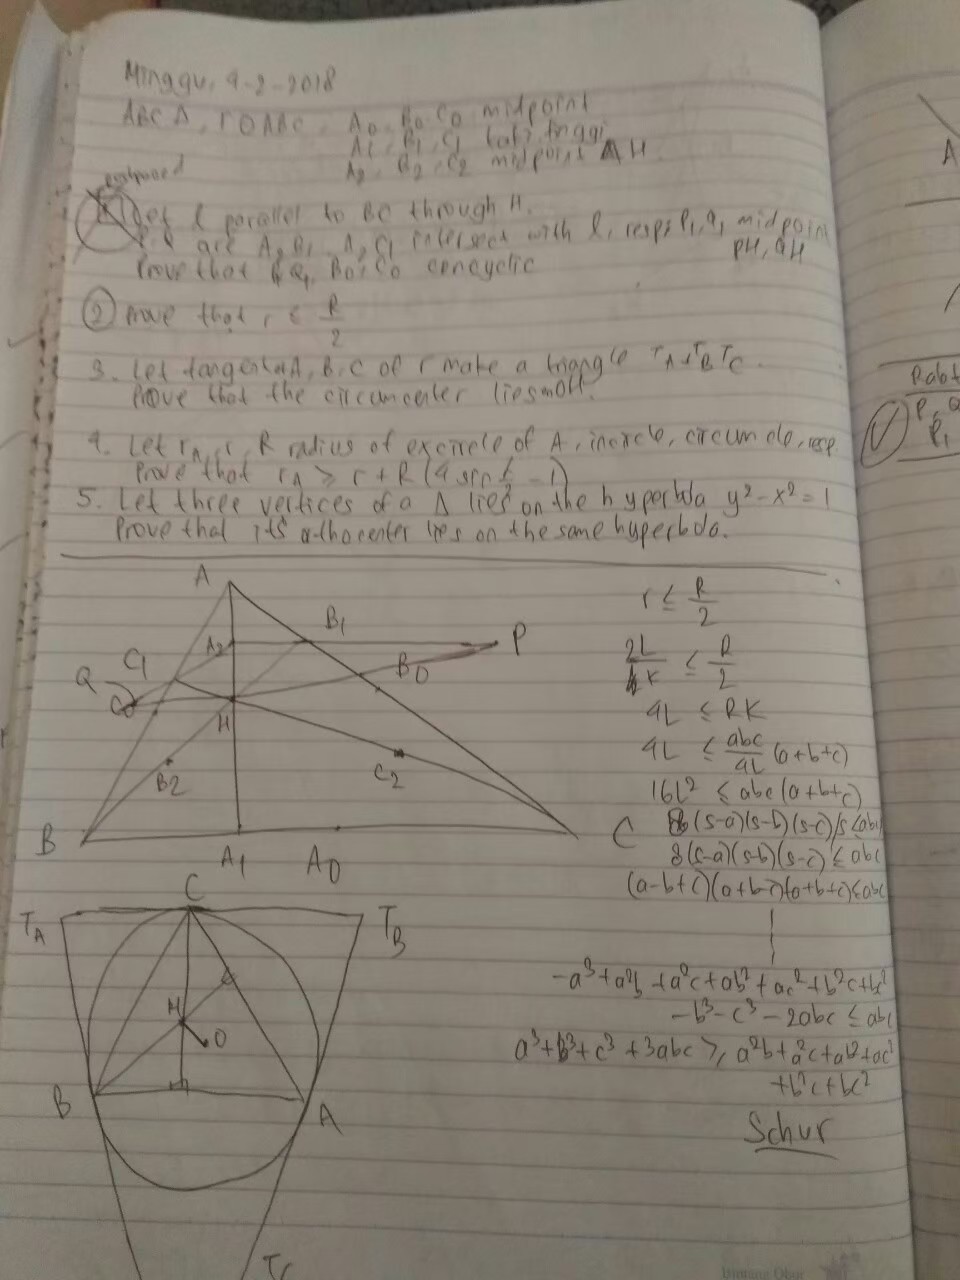 Minggu, 4-2-2018
ABC Δ, Γ ⊙ABC, A0, B0, C0 midpoint
A1, B1, C1 kaki tinggi
A2, B2, C2 midpoint AH
postponed
1. Let l parallel to BC through H.
P, Q are A2B1, A2C1 intersect with l, resp; P1, Q1 midpoint
PH, QH
Prove that P1 Q1, B0, C0 concyclic
2 Prove that r ≤ R/2
3. Let tangent at A, B, C of Γ make a triangle TATBTC.
Prove that the circumcenter lies on OH.
4. Let rA, r, R radius of excircle of A, incircle, circumcircle, resp.
Prove that rA ≥ r + R(4 sin
5. Let three vertices of a Δ lies on the hyperbola y²-x²=1
Prove that its orthocenter lies on the same hyperbola.
A
B1
A2
P
C1
Q
B0
C0
H
B2
C2
B
C
A1
A0
r ≤ R/2
2L/K ≤ R/2
4L ≤ RK
4L ≤ abc/4L (a+b+c)
16L² ≤ abc(a+b+c)
(s-a)(s-b)(s-c)
8(s-a)(s-b)(s-c) ≤ abc
(a-b+c)(a+b-c)(a+b+c) ≤ abc
-a³+a²b+a²c+ab²+ac²+b²c+bc²
-b³-c³-2abc ≤ abc
a³+b³+c³+3abc ≥ a²b+a²c+ab²+ac²
+b²c+bc²
Schur
C
TA
TB
H
O
B
A
TC
A
Rabt
P, Q
P1
Bintang Obor